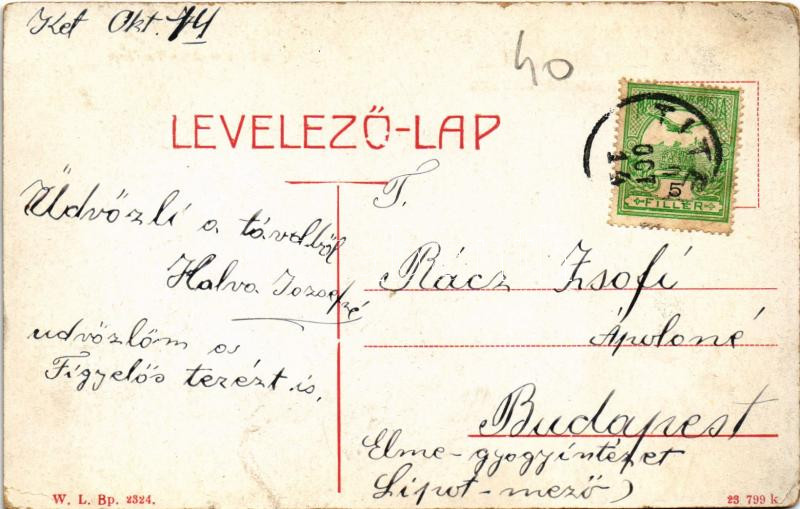 Ket Okt. 14
40
LEVELEZŐ-LAP
5
FILLÉR
OCT
14
Üdvözli a távolból
Halva Jozsefné
udvözlöm a
Figyelős tezézt is.
T.
Rácz Zsofi
Ápoloné
Budapest
Elme-gyogyintézet
Lipot-mező)
W. L. Bp. 2324.
23 799 k